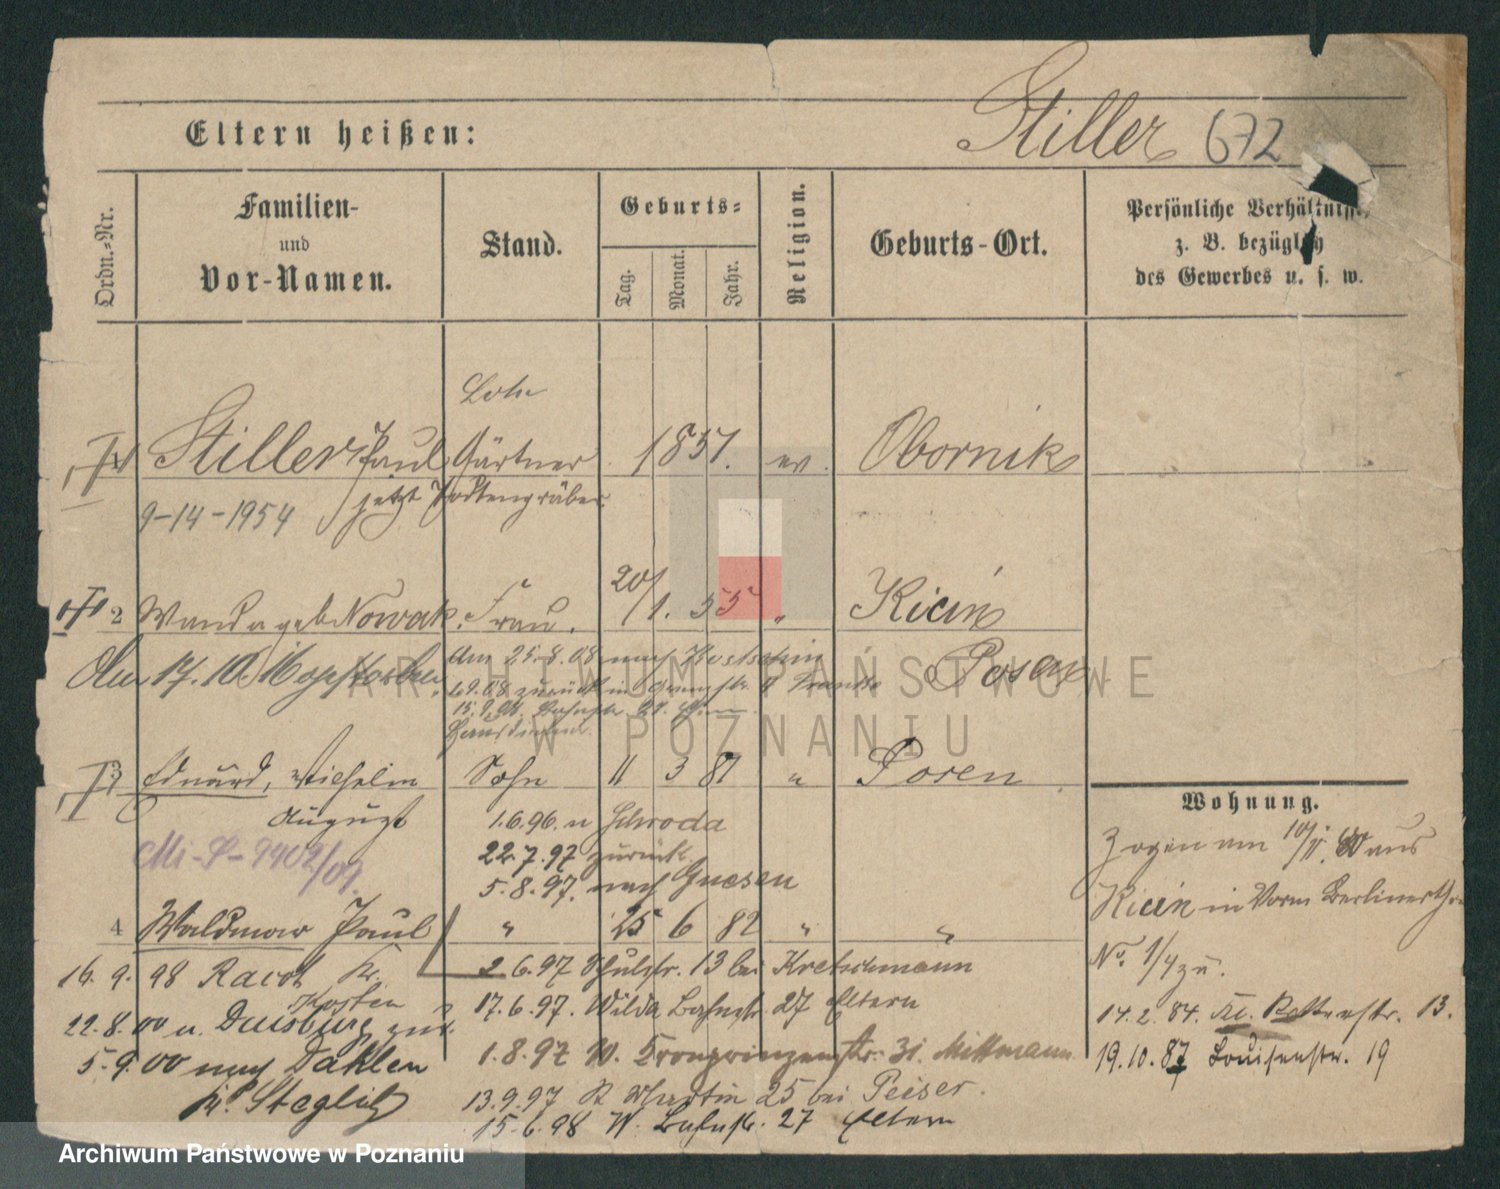 Eltern heißen:
Stiller 672
Ordn.-Nr.
Familien-
und
Vor-Namen.
Stand.
Geburts-
Tag.
Monat.
Jahr.
Religion.
Geburts-Ort.
Persönliche Verhältnisse,
z. B. bezüglich
des Gewerbes u. s. w.
1 Stiller Paul Gärtner 1851. ev. Obornik
jetzt Todtengräber
9-14-1954
2 Wanda geb Nowak. Frau. 20/1. 55 " Kicin
Posen
Am 17. 10. 16 gestorben
am 25.8.08 nach
3 Eduard, Wilhelm Sohn 11 3 81 " Posen
August
1.6.96. n Schroda
22.7.97 zurück
5.8.97. nach Gnesen
Mi-S-9402/09.
4 Waldmar Paul " 25 6 82 " "
2.6.97 Schulstr. 13 bei Kretschmann
17.6.97. Wilda Bahnstr. 27 Eltern
1.8.97 W. Kronprinzenstr. 31 Mittmann
13.9.97 St Martin 25 bei Peiser.
15.6.98 W. Bahnstr. 27 Eltern
16.9.98 Racot Kr.
Kosten
22.8.00 v. Duisburg zur.
5.9.00 nach Dahlen
Kr. Steglitz
Wohnung.
Zogen am 10/ aus
Kicin in Vorm Berlinerthor
No. 1/4 zu.
14.2.84. Kl. Ritterstr. 13.
19.10.87 Louisenstr. 19
ARCHIWUM PAŃSTWOWE
W POZNANIU
Archiwum Państwowe w Poznaniu